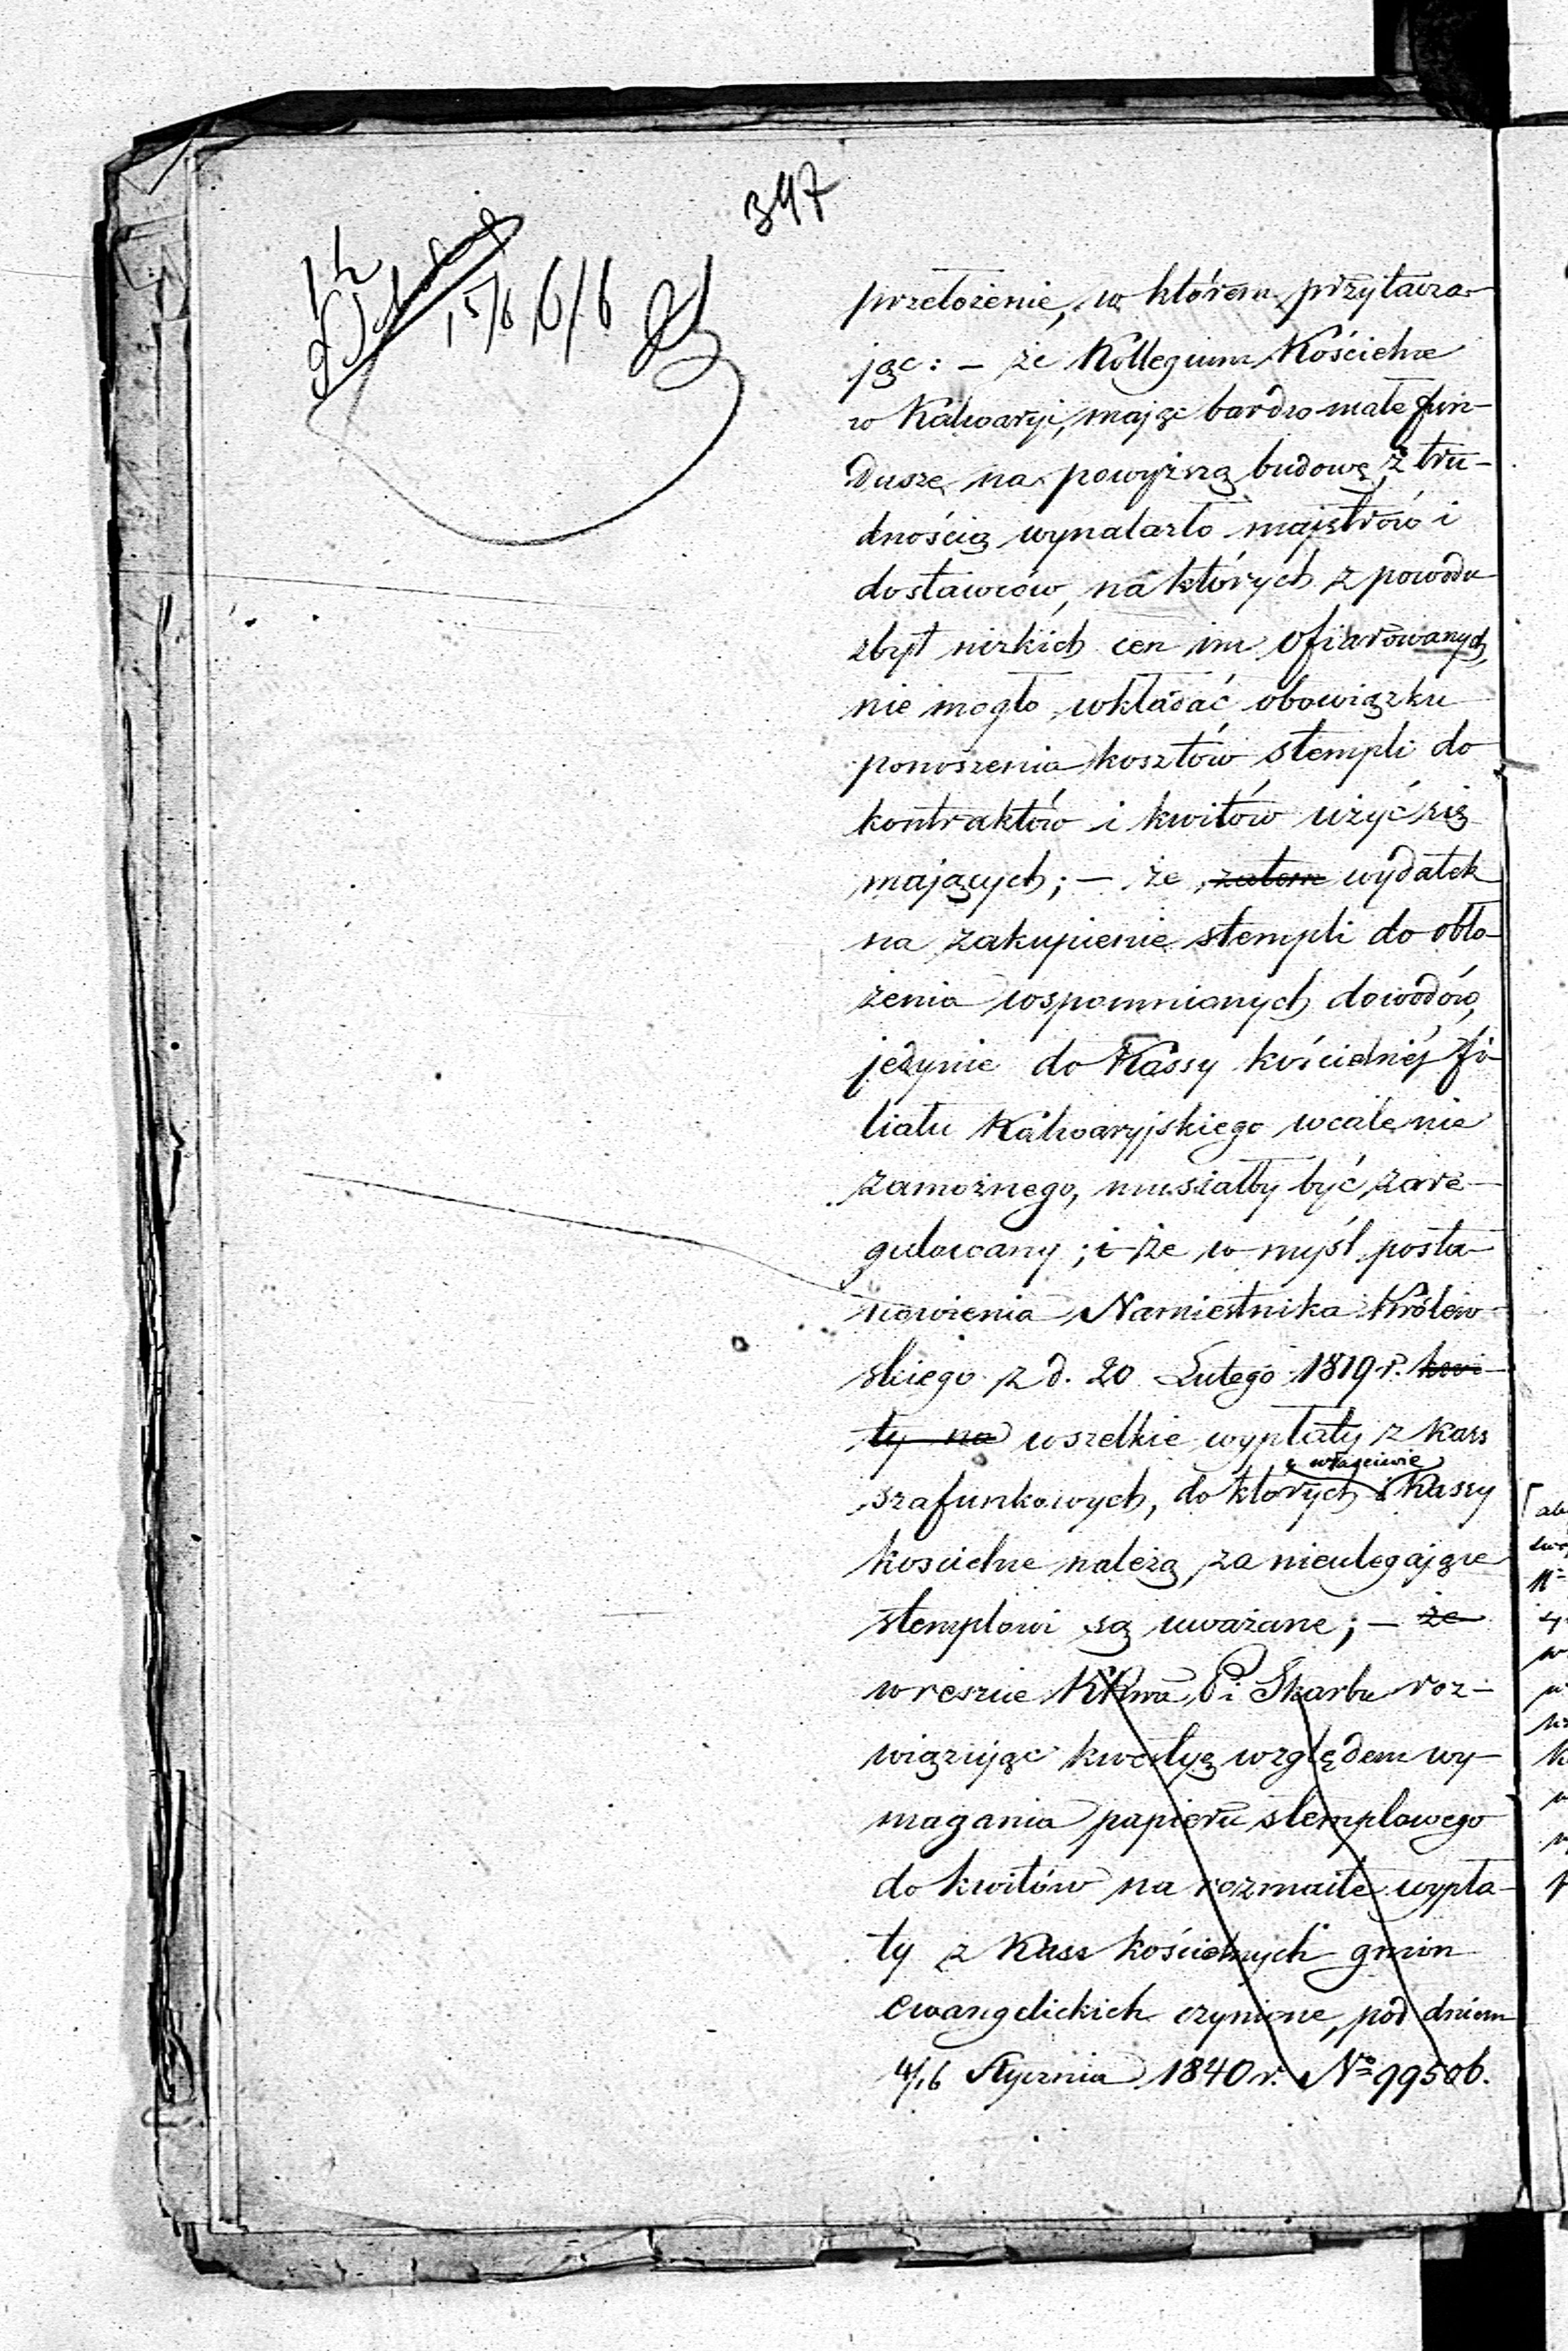 347
15/6 6/6
przełożenie, w którem przytacza-
jąc: – że Kollegium Kościelne
w Kalwaryi, mając bardzo małe fun-
dusze na powyższą budowę, z tru-
dnością wynalazło majstrów i
dostawców, na których z powodu
zbyt nizkich cen im ofiarowanych,
nie mogło wkładać obowiązku
ponoszenia kosztów stempli do
kontraktów i kwitów użyć się
mających; – że zatem wydatek
na zakupienie stempli do obło-
żenia wspomnianych dowodów,
jedynie do Kassy kościelnéj fi-
liału Kalwaryjskiego wcale nie
zamożnego, musiałby być zare-
gulowany; i że w myśl posta-
nowienia Namiestnika Królew-
skiego z d. 20 Lutego 1819 r. kwi-
ty na wszelkie wypłaty z kass
właściwie
szafunkowych, do których i Kassy
kościelne należą, za nieulegające
stemplowi są uważane; – że
wreszcie KRwa P i Skarbu roz-
wiązując kwestyą względem wy-
magania papieru stemplowego
do kwitów na rozmaite wypła-
ty z Kass kościelnych gmin
ewangelickich czynione, pod dniem
4/16 Stycznia 1840 r. No 99506.